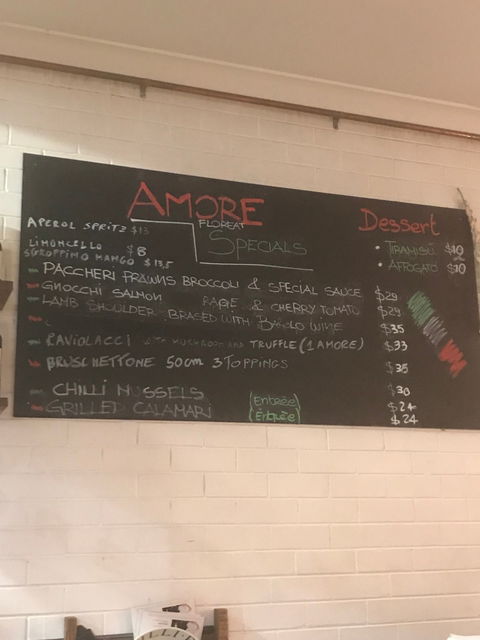 AMORE
FLOREAT
SPECIALS
APEROL SPRITZ $13
LIMONCELLO $8
SGROPPINO MANGO $13,5
Dessert
• TIRAMISÙ $10
• AFFOGATO $10
- PACCHERI PRAWNS BROCCOLI & SPECIAL SAUCE $29
- GNOCCHI SALMON & CHERRY TOMATO $29
- LAMB SHOULDER BRASED WITH BAROLO WINE $35
- RAVIOLACCI WITH MUSHROOM AND TRUFFLE (1 AMORE) $33
- BRUSCHETTONE 50cm 3 TOPPINGS $35
$30
- CHILLI MUSSELS (Entrèe) $24
- GRILLED CALAMARI (Entrèe) $24